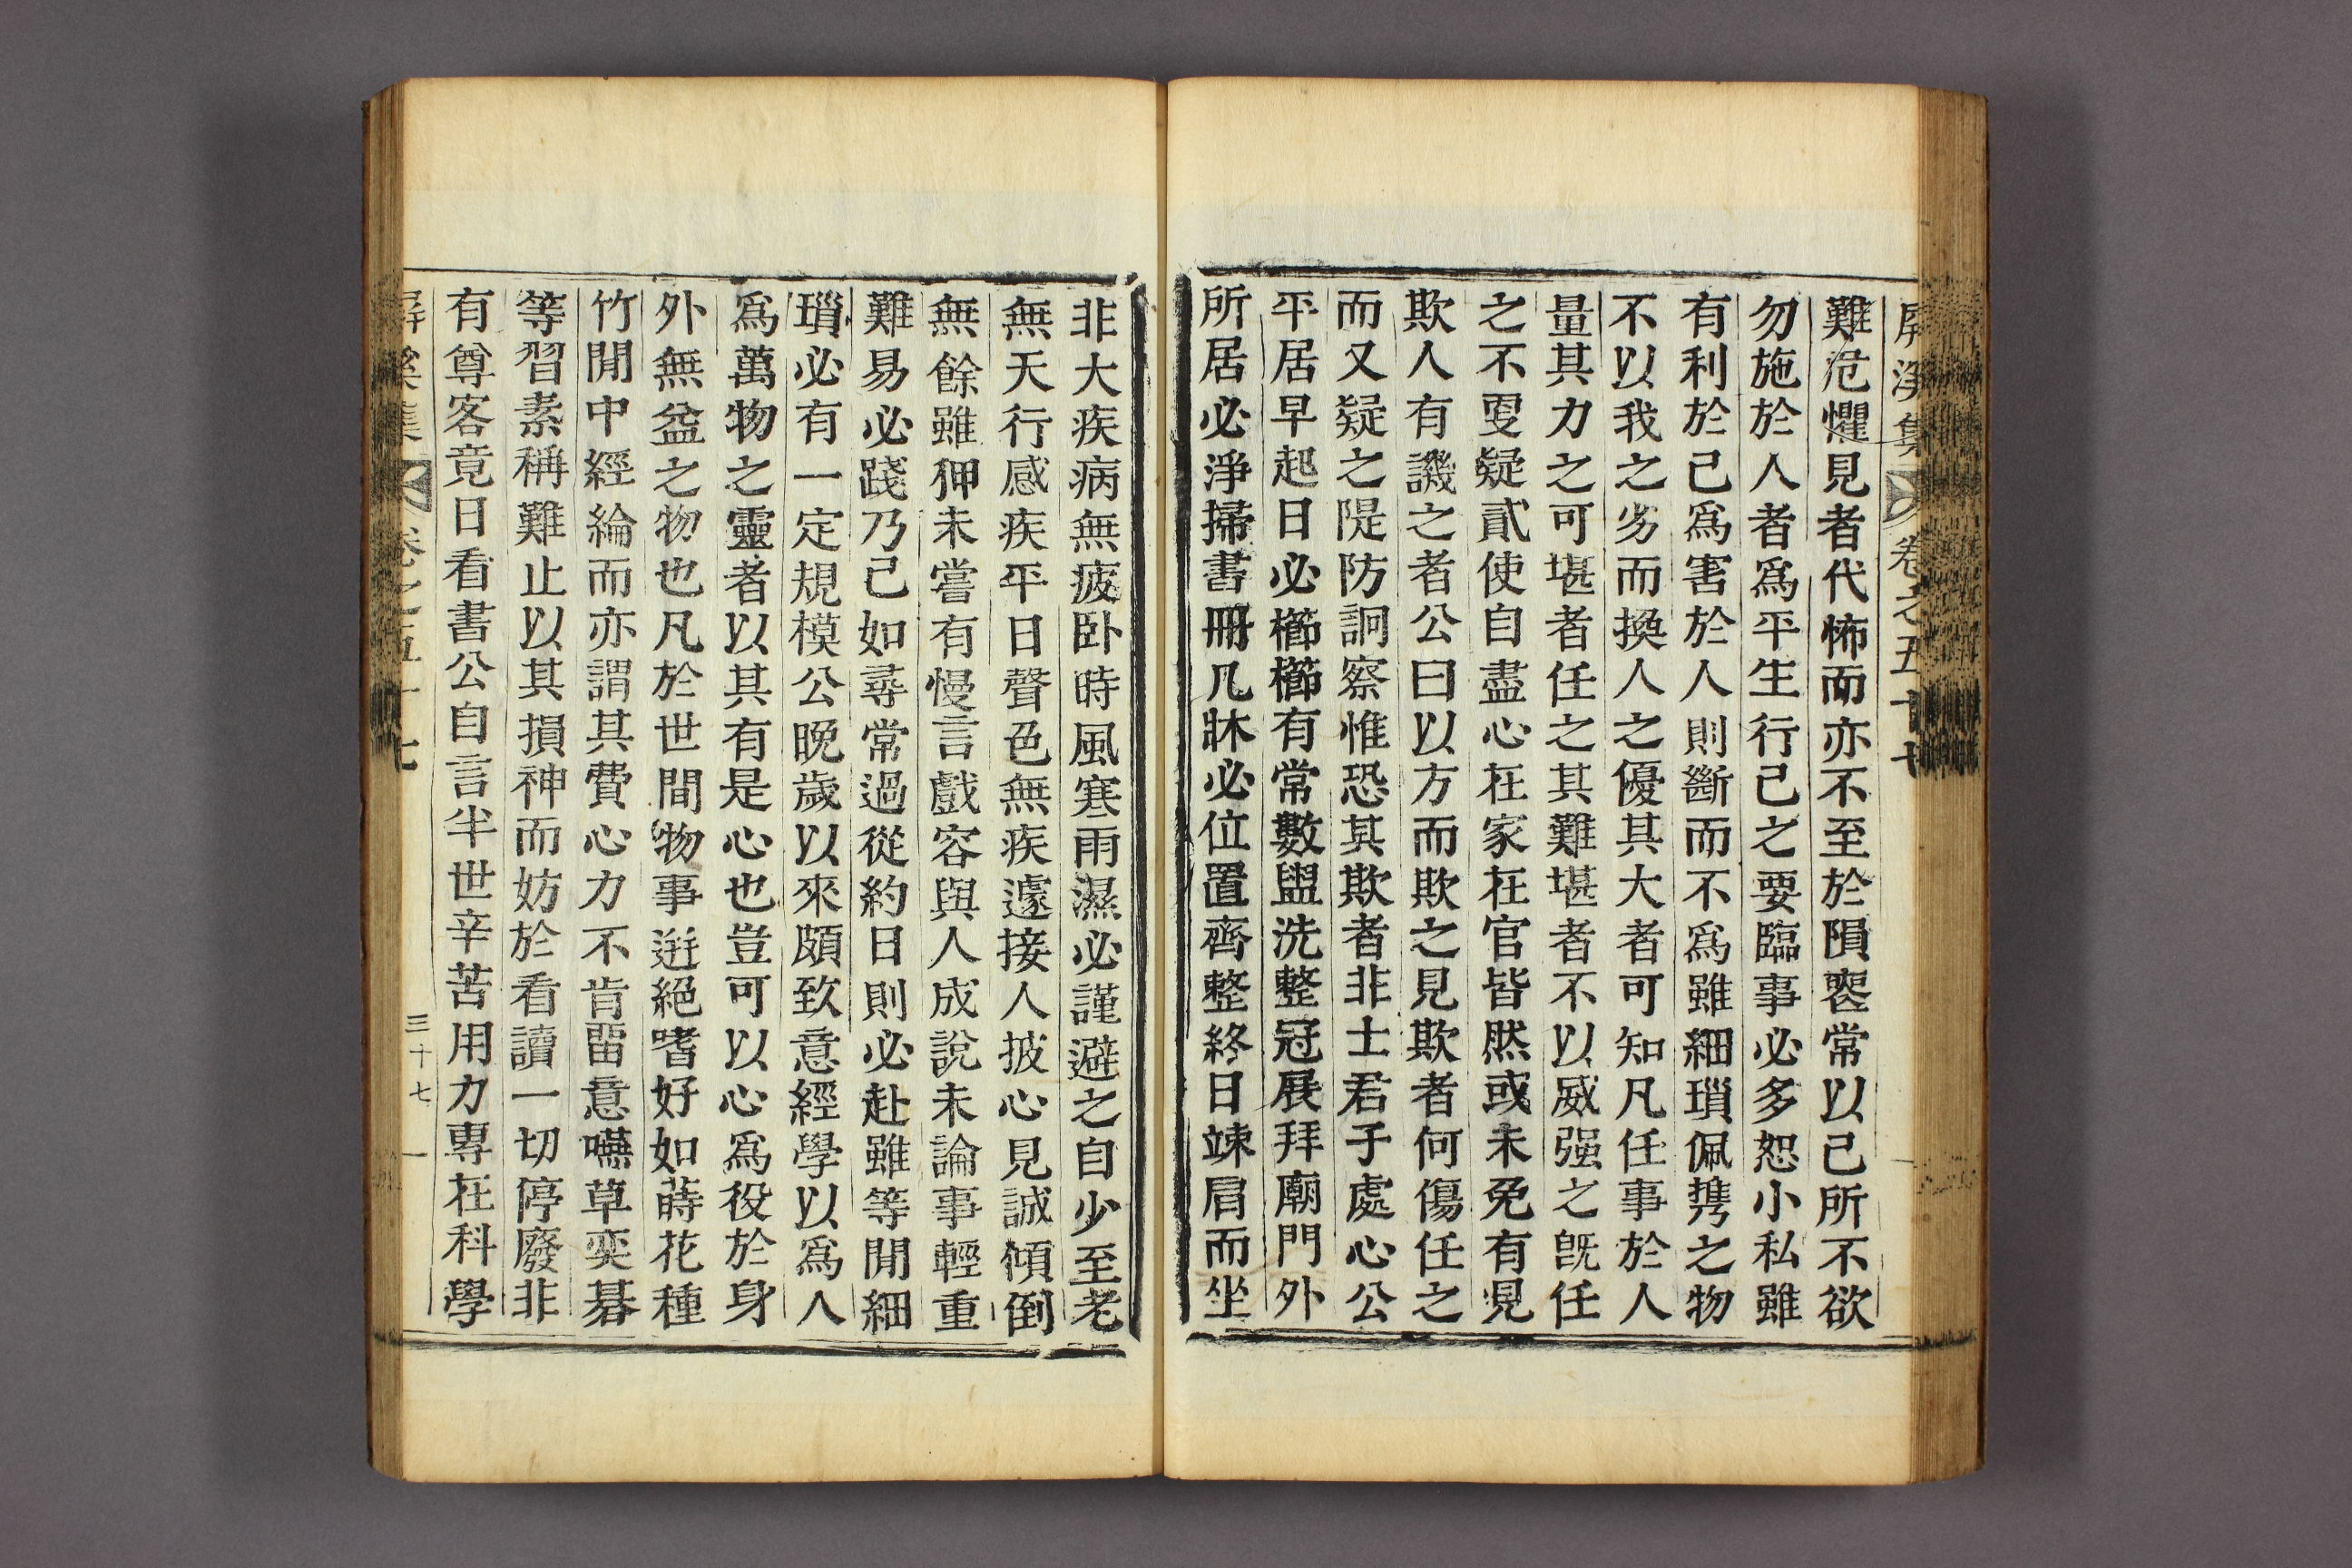 屛溪集 卷之五十七
難危懼見者代怖而亦不至於隕喪常以己所不欲
勿施於人者爲平生行己之要臨事必多恕小私雖
有利於己爲害於人則斷而不爲雖細瑣佩携之物
不以我之劣而換人之優其大者可知凡任事於人
量其力之可堪者任之其難堪者不以威强之旣任
之不更疑貳使自盡心在家在官皆然或未免有見
欺人有譏之者公曰以方而欺之見欺者何傷任之
而又疑之隄防詗察惟恐其欺者非士君子處心公
平居早起日必櫛櫛有常數盥洗整冠展拜廟門外
所居必淨掃書冊几牀必位置齊整終日竦肩而坐
非大疾病無疲卧時風寒雨濕必謹避之自少至老
無天行感疾平日聲色無疾遽接人披心見誠傾倒
無餘雖狎未嘗有慢言戲容與人成說未論事輕重
難易必踐乃己如尋常過從約日則必赴雖等閒細
瑣必有一定規模公晩歲以來頗致意經學以爲人
爲萬物之靈者以其有是心也豈可以心爲役於身
外無益之物也凡於世間物事逬絕嗜好如蒔花種
竹閒中經綸而亦謂其費心力不肯留意嚥草奕碁
等習素稱難止以其損神而妨於看讀一切停廢非
有尊客竟日看書公自言半世辛苦用力專在科學
屛溪集 卷之五十七 三十七